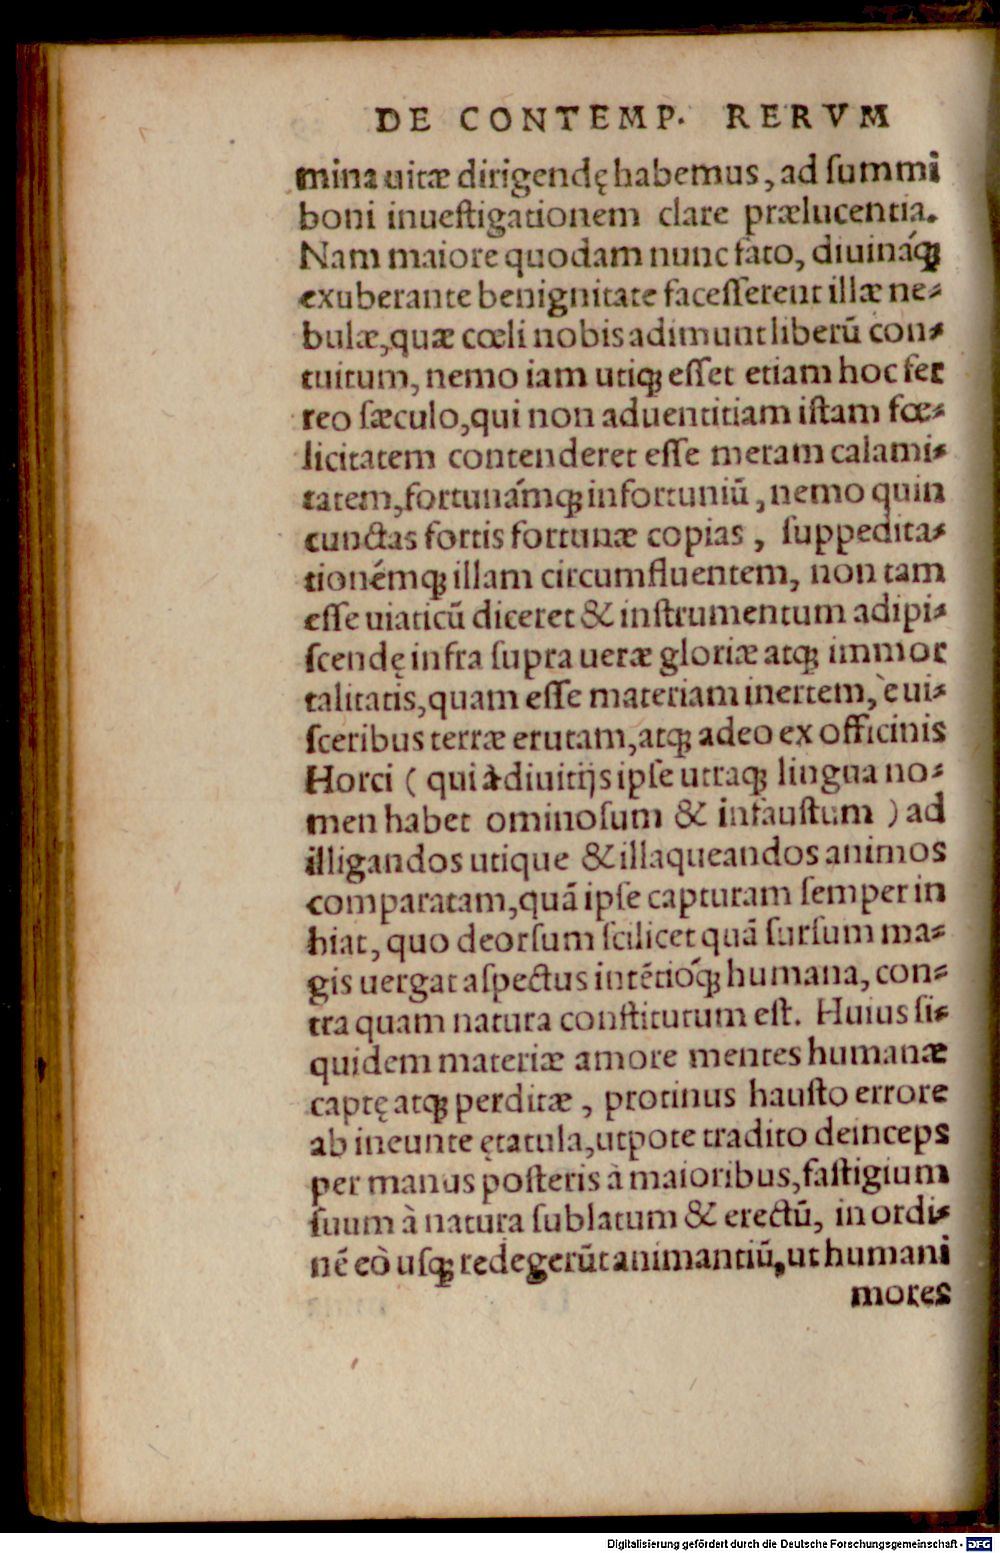 DE CONTEMP. RERVM
mina uitæ dirigendę habemus, ad ſummi
boni inueſtigationem clare prælucentia.
Nam maiore quodam nunc fato, diuináq;
exuberante benignitate faceſſerent illæ ne-
bulæ, quæ cœli nobis adimunt liberū con-
tuitum, nemo iam utiq; eſſet etiam hoc fer
reo ſæculo, qui non aduentitiam iſtam fœ-
licitatem contenderet eſſe meram calami-
tatem, fortunámq; infortuniū, nemo quin
cunctas fortis fortunæ copias, ſuppedita-
tionémq; illam circumfluentem, non tam
eſſe uiaticū diceret & inſtrumentum adipi-
ſcendę infra ſupra ueræ gloriæ atq; immor
talitatis, quam eſſe materiam inertem, è ui-
ſceribus terræ erutam, atq; adeo ex officinis
Horci ( qui à diuitijs ipſe utraq; lingua no-
men habet ominoſum & infauſtum ) ad
illigandos utique & illaqueandos animos
comparatam, quā ipſe capturam ſemper in
hiat, quo deorſum ſcilicet quā ſurſum ma-
gis uergat aſpectus intētióq; humana, con-
tra quam natura conſtitutum eſt. Huius ſi-
quidem materiæ amore mentes humanæ
captę atq; perditæ, protinus hauſto errore
ab ineunte ętatula, utpote tradito deinceps
per manus poſteris à maioribus, faſtigium
ſuum à natura ſublatum & erectū, in ordi-
nē eò uſq; redegerūt animantiū, ut humani
mores
Digitalisierung gefördert durch die Deutsche Forschungsgemeinschaft - DFG